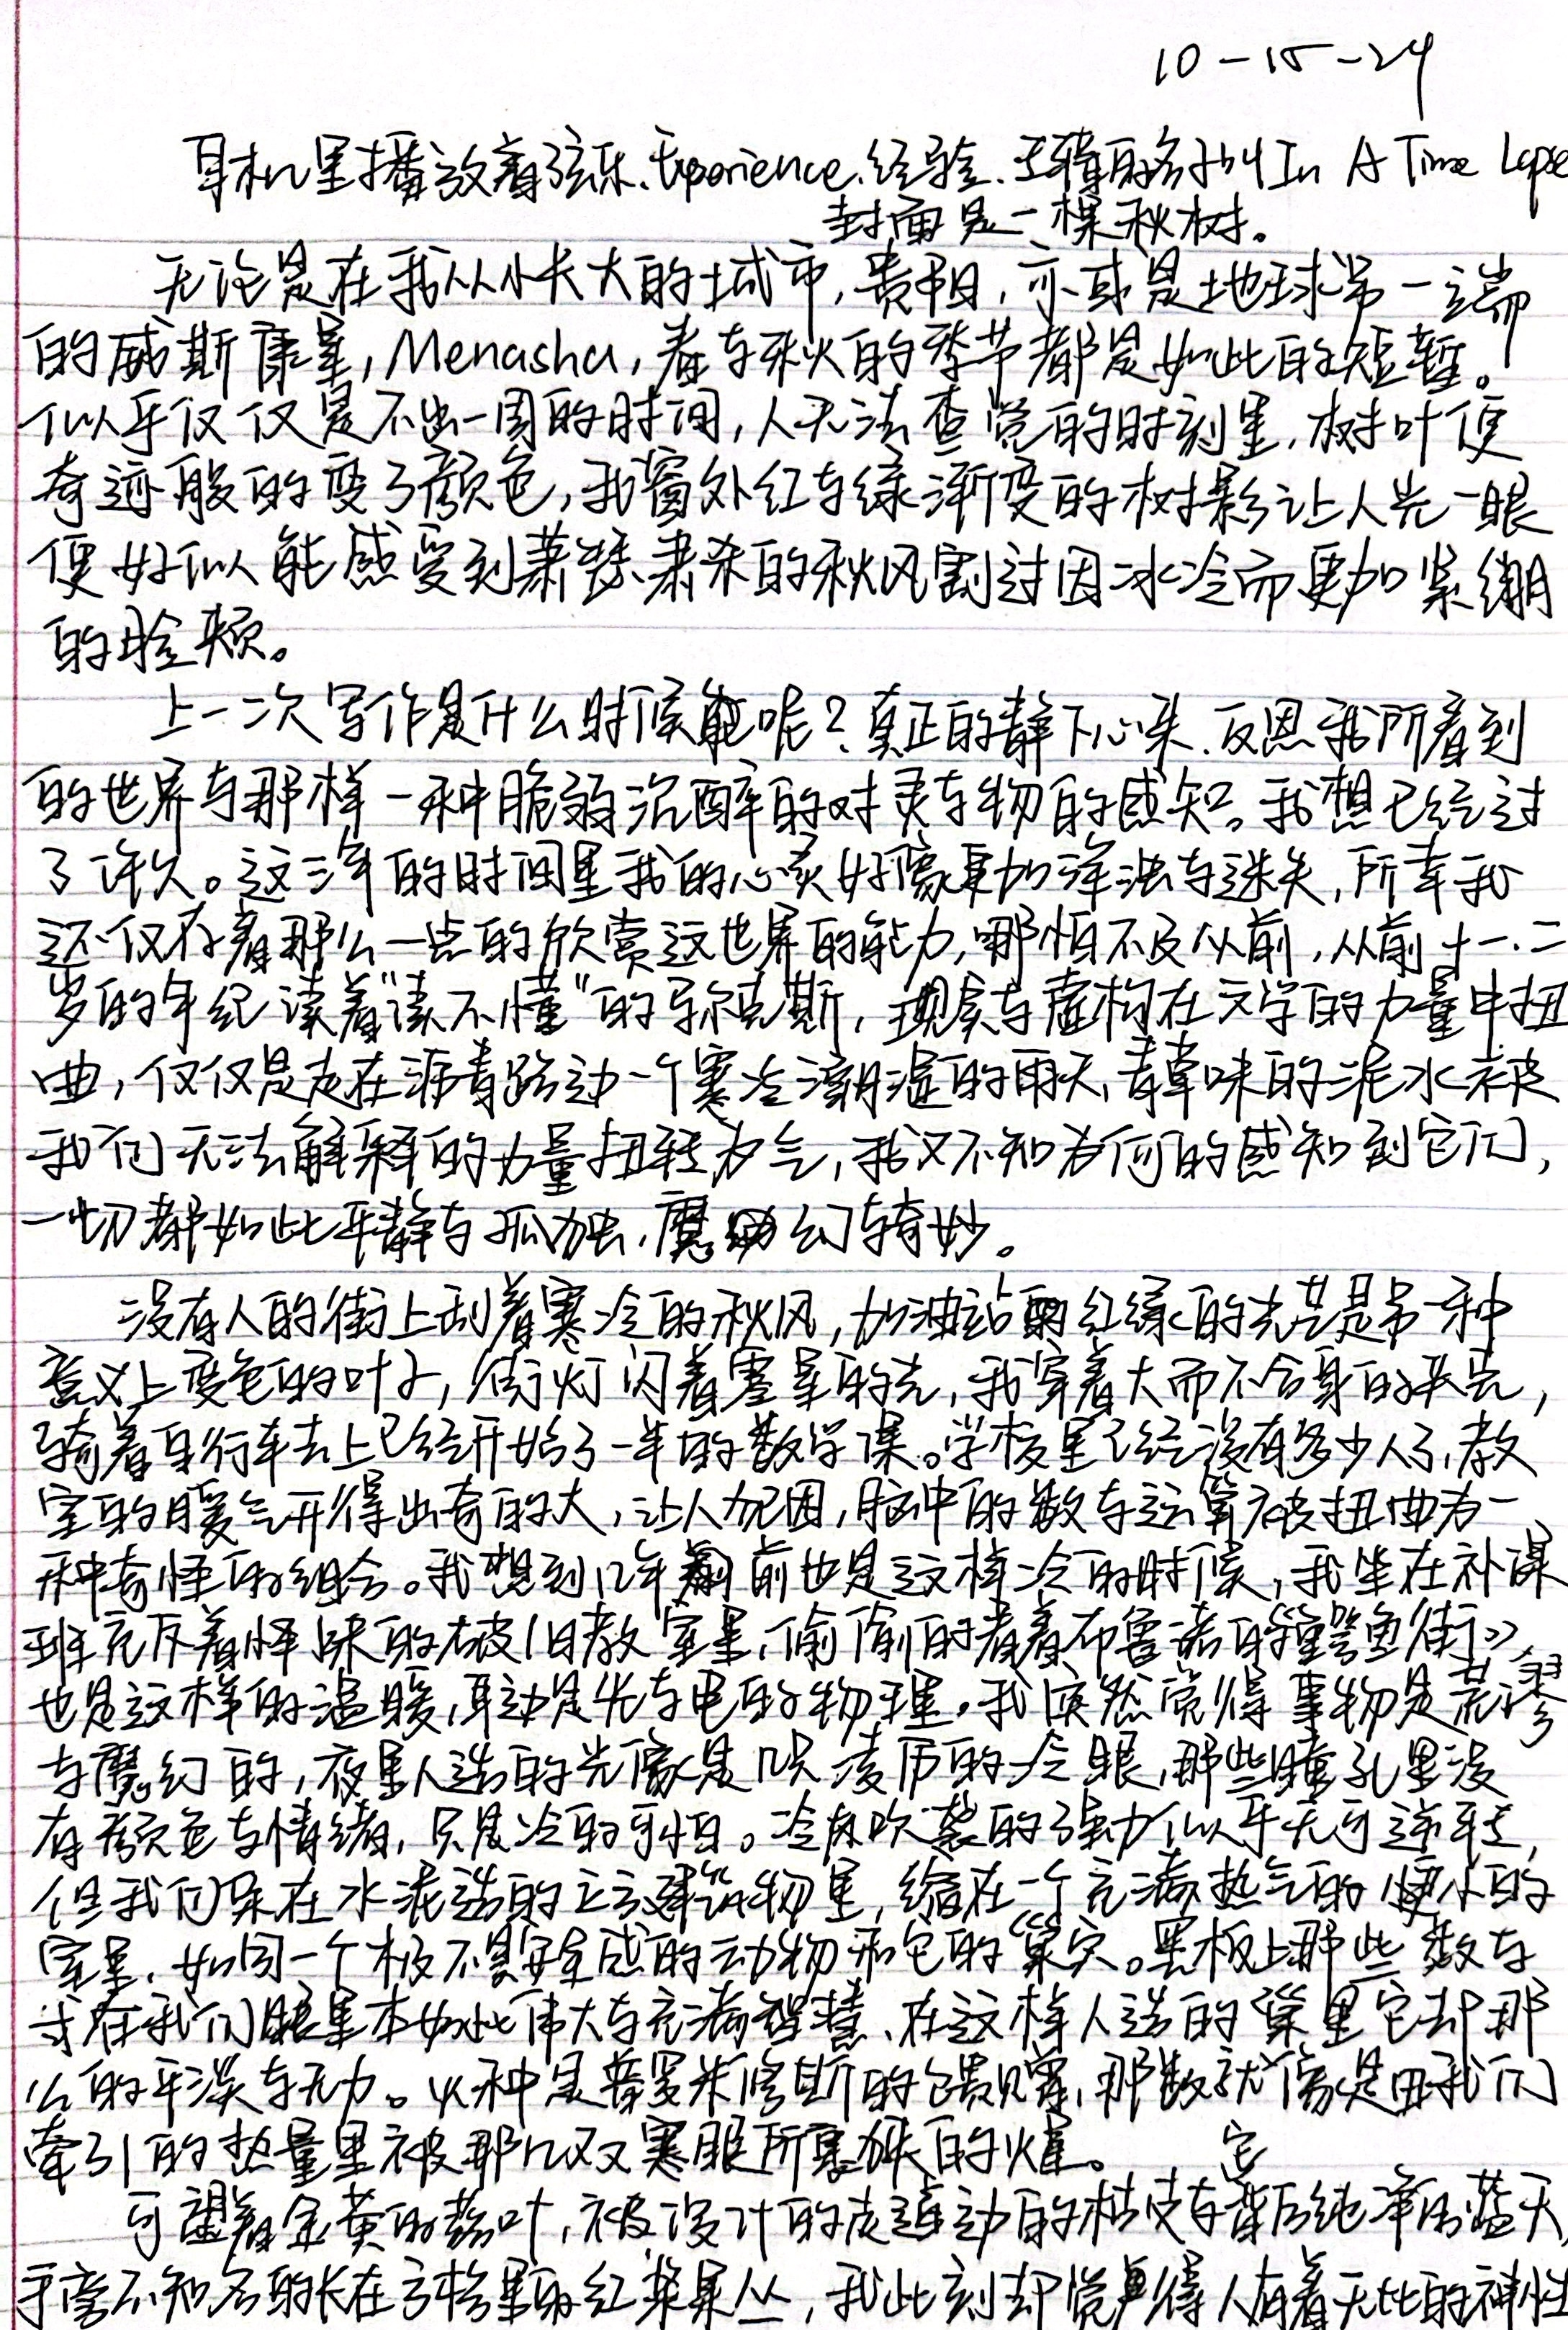 10-15-24
耳机里播放着弦乐、Experience、经验、专辑的名字叫In A Time Lapse
封面是一棵秋树。
无论是在我从小长大的城市,贵阳,亦或是地球另一端
的威斯康星,Menasha,春与秋的季节都是如此的短暂。
似乎仅仅是不出一周的时间,人无法查觉的时刻里,树叶便
奇迹般的变了颜色,我窗外红与绿渐变的树影让人光一眼
便好似能感受到萧瑟、肃杀的秋风割过因冰冷而更加紧绷
的脸颊。
上一次写作是什么时候呢?真正的静下心来、反思我所看到
的世界与那样一种脆弱沉醉的对灵与物的感知。我想已经过
了许久。这三年的时间里我的心灵好像更加浑浊与迷失,所幸我
还仅存着那么一点的欣赏这世界的能力,哪怕不及从前,从前十一、二
岁的年纪读着“读不懂”的马尔克斯,现实与虚构在文学的力量中扭
曲,仅仅是走在沥青路边一个寒冷潮湿的雨天、青草味的泥水被
我们无法解释的力量扭转为气,我又不知为何的感知到它们,
一切都如此平静与孤独、魔幻与奇妙。
没有人的街上刮着寒冷的秋风,加油站红绿的光芒是另一种
意义上变色的叶子,街灯闪着寒星的光,我穿着大而不合身的夹克,
骑着自行车去上已经开始了一半的数学课。学校里已经没有多少人了,教
室的暖气开得出奇的大,让人犯困,脑中的数与运算被扭曲为一
种奇怪的组合。我想到几年前也是这样冷的时候,我坐在补课
班充斥着怪味的破旧教室里,偷偷的看着布鲁诺的《鳄鱼街》,
也是这样的温暖,耳边是光与电的物理。我陡然觉得事物是荒谬
与魔幻的,夜里人造的光像是几只凌厉的冷眼,那些瞳孔里没
有颜色与情绪,只是冷的可怕。冷风吹袭的强力似乎无可逆转,
但我们呆在水泥造的正方建筑物里,缩在一个充满热气的更小的
室里、如同一个极不具安全感的动物和它的巢穴。黑板上那些数与
式在我们眼里本如此伟大与充满智慧、在这样人造的巢里它却那
么的平淡与无力。火种是普罗米修斯的馈赠,那数就像是由我们
牵引的热量里被那几双寒眼所寡淡的火焰。
它
可望着金黄的落叶,被设计的皮连动的枯皮与背后纯净的蓝天,
手旁不知名的长在方格里的红浆果丛,我此刻却觉得人有着无比的神性